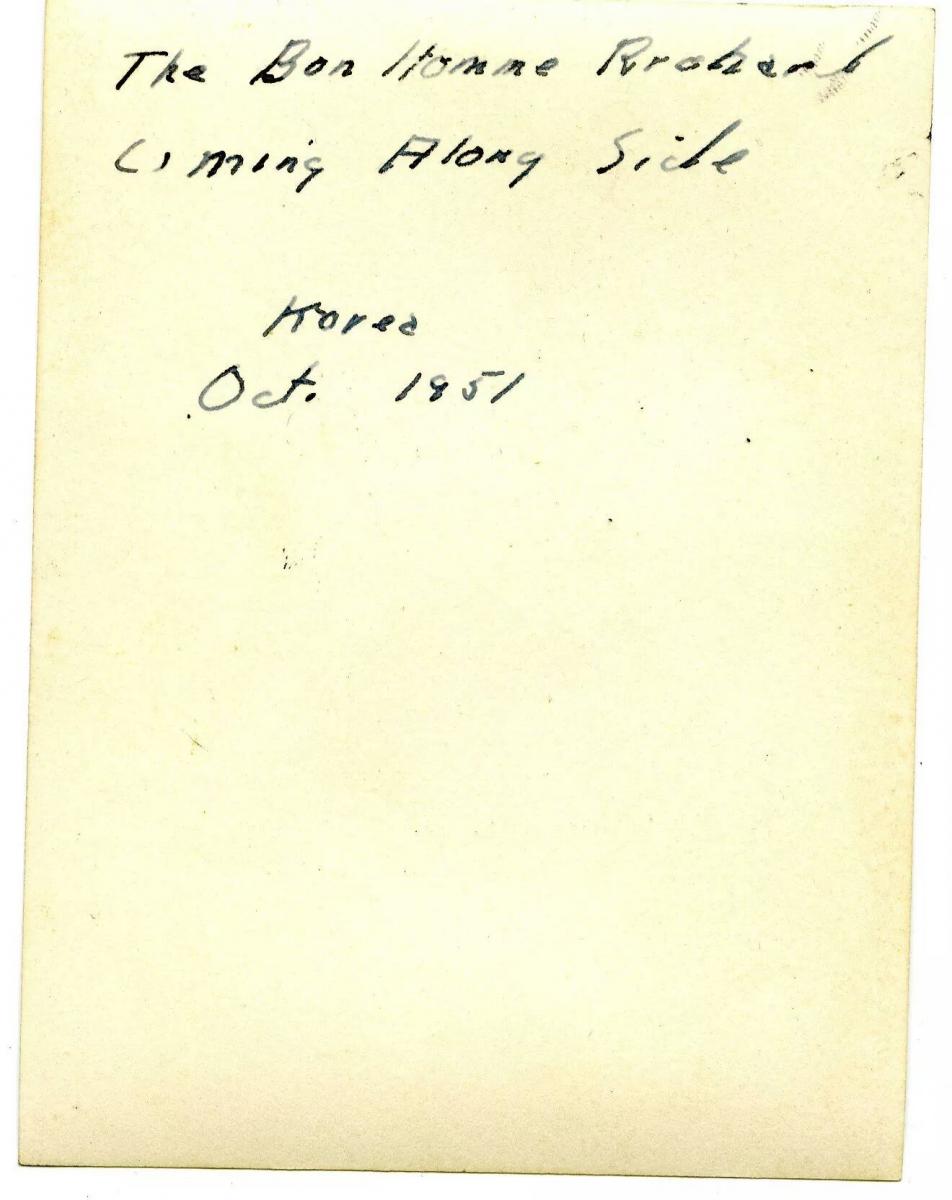 The Bon Homme Richard
Coming Along Side
Korea
Oct. 1951